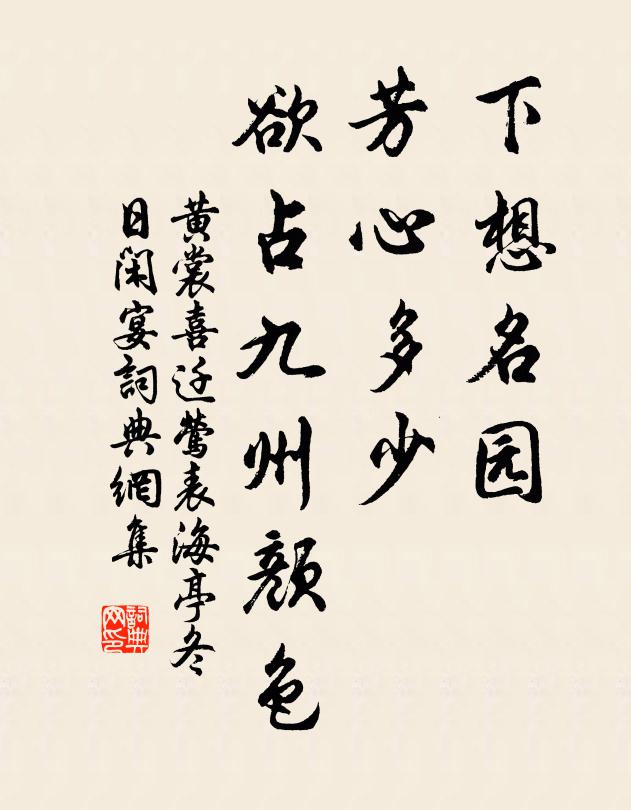 下想名园
芳心多少
欲占九州颜色
黄裳喜迁莺表海亭冬
日闲宴詞典網集
詞典网印